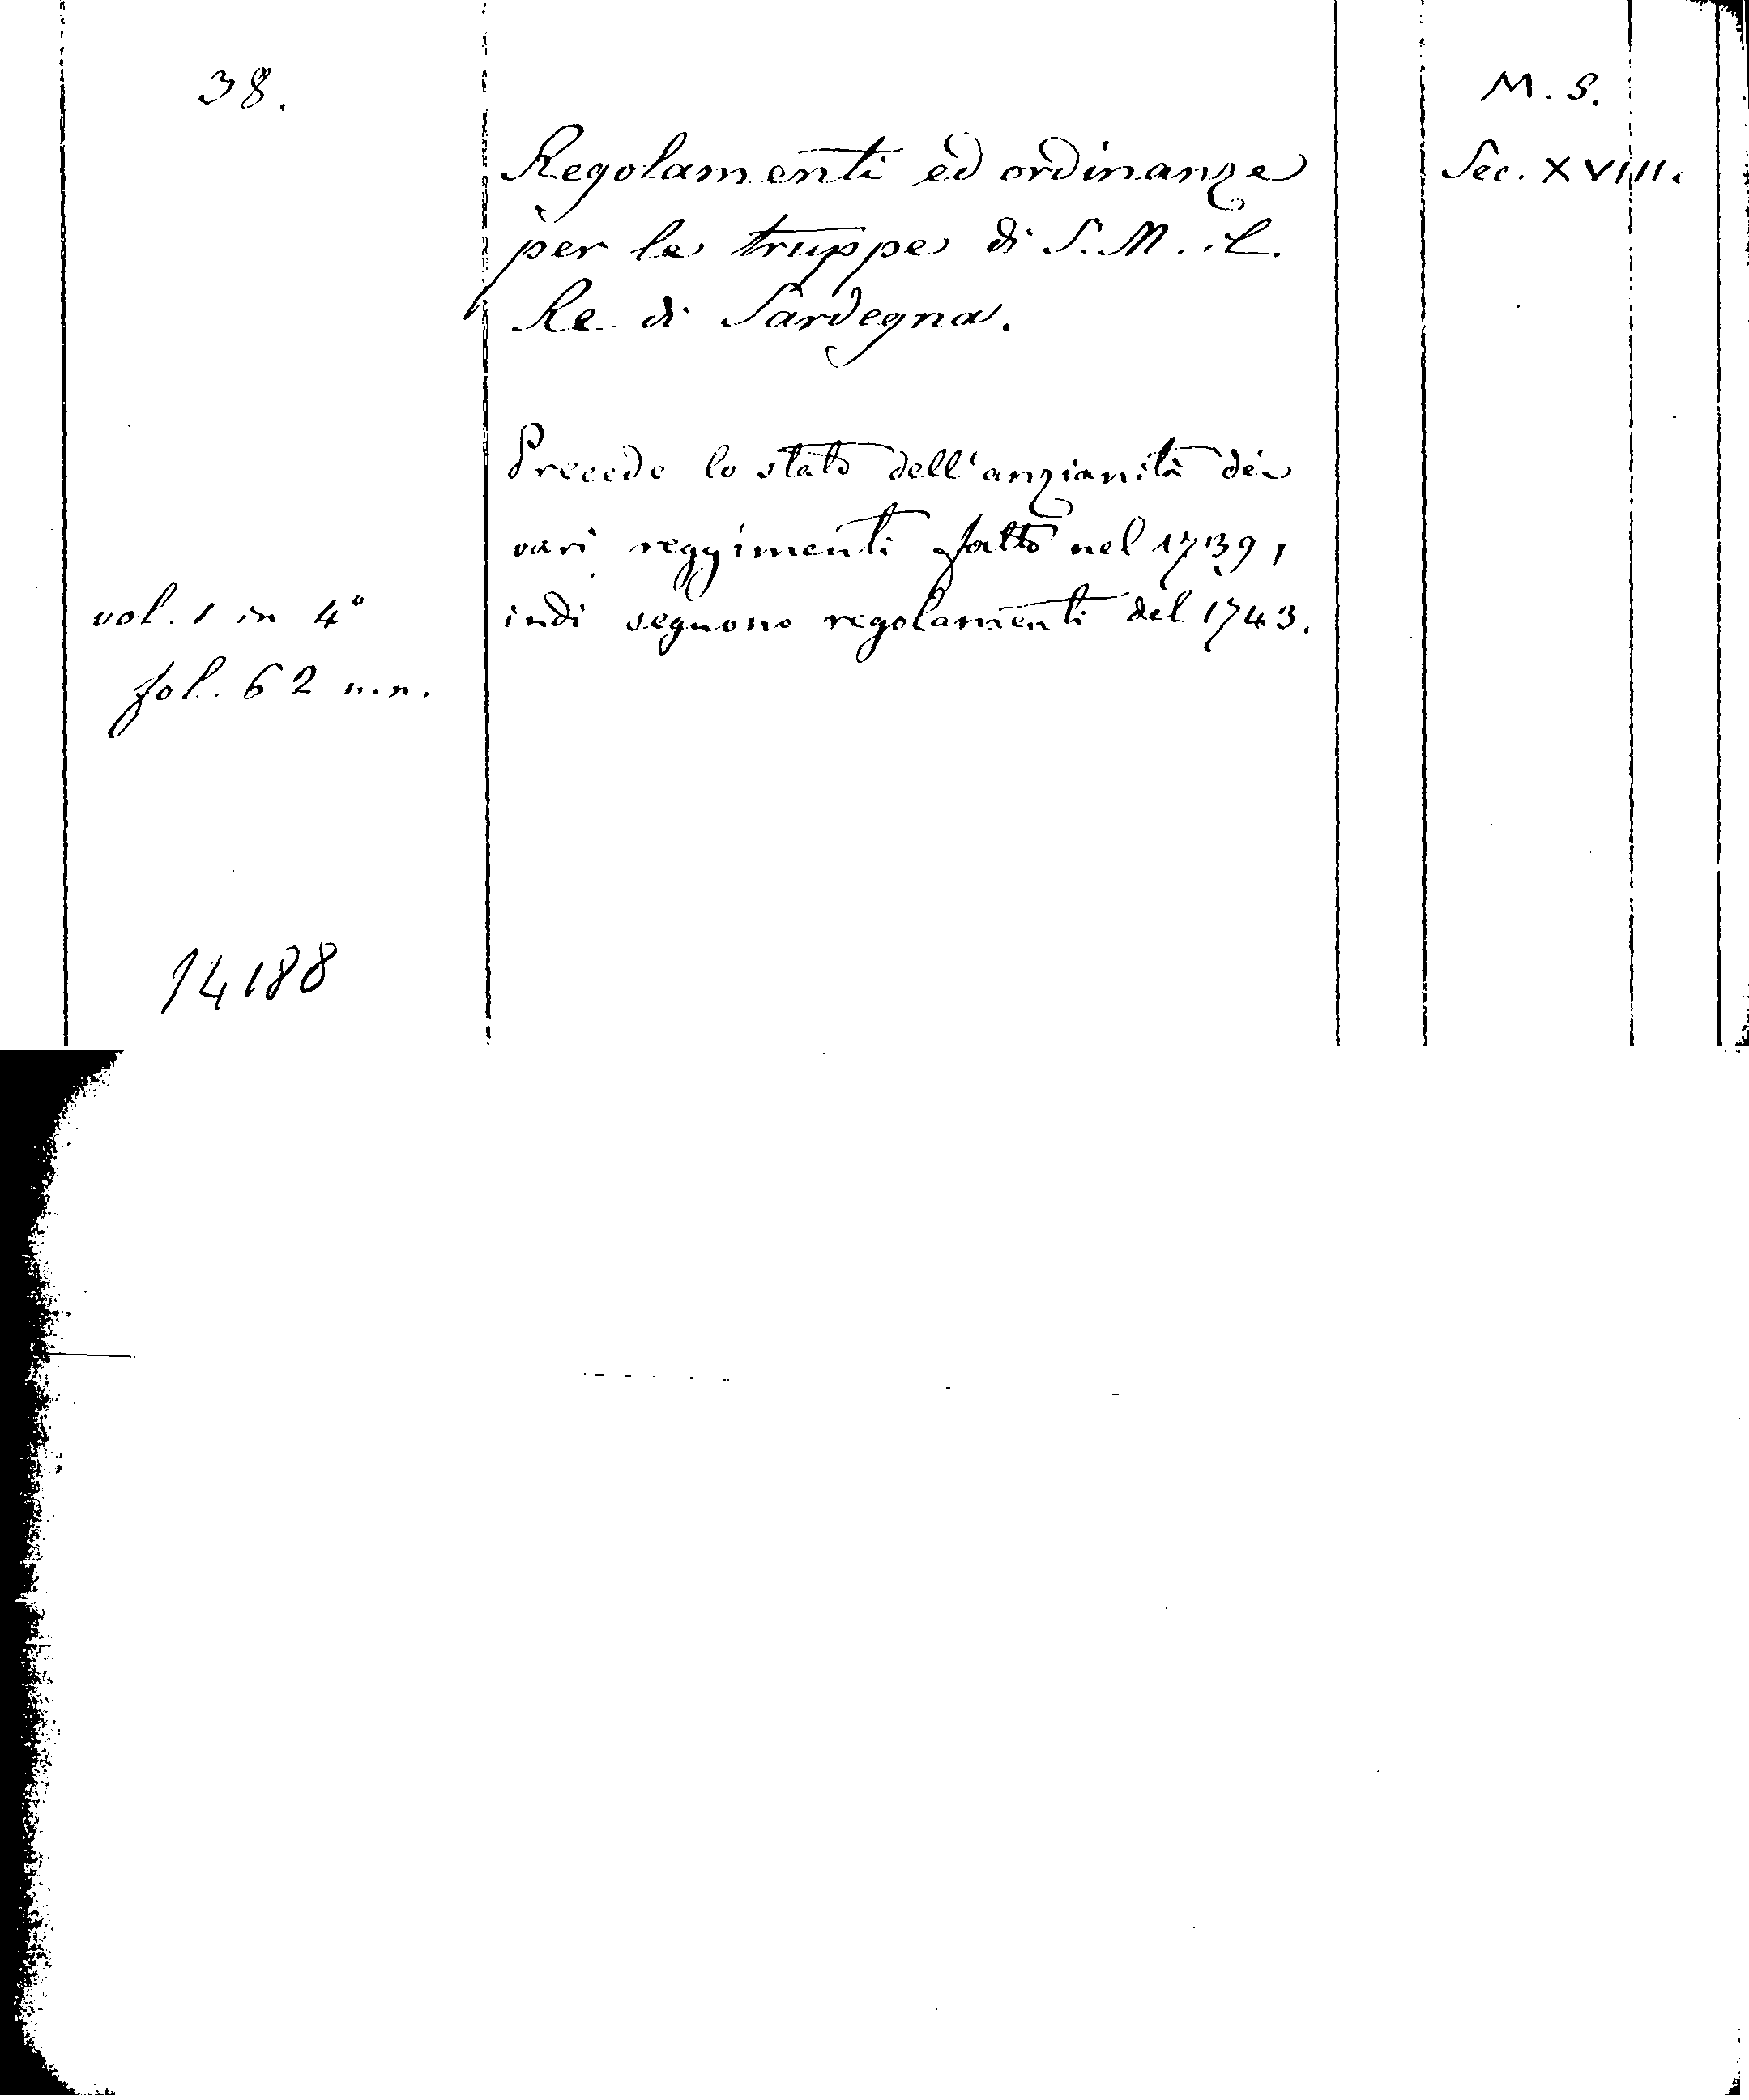 38.
M. S.
Sec. XVIII.
Regolamenti ed ordinanze
per le truppe di S. M. il
Re di Sardegna.
Precede lo stato dell'anzianità dei
vari reggimenti fatto nel 1739,
indi seguono regolamenti del 1743.
vol. 1 in 4°
fol. 62 n.n.
14188